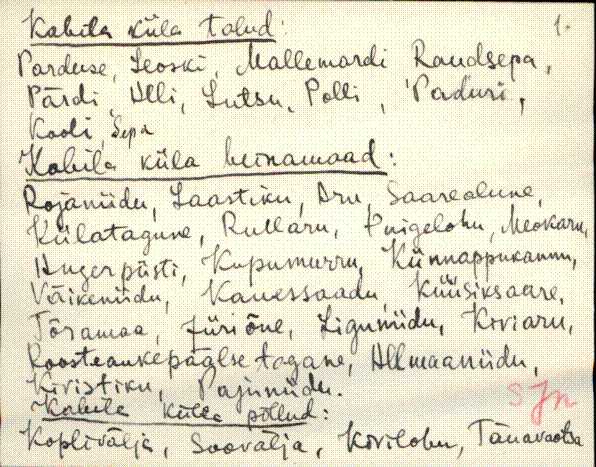 Kabila küla talud: 1.
Parduse, Leoski, Mallemardi Raudsepa,
Pärdi, Alli, Lutsu, Polli, Paduri,
Kooli, Sepa
Kabila küla heinamaad:
Rojaniidu, Laastiku, Aru, Saarealune,
Külatagune, Rullaru, Puigelohu, Meokaru,
Hugerpüsti, Kupumurru, Künnappukannu,
Väikeniidu, Kanessaadu, Küüsiksaare,
Tõramaa, Jüriõne, Liguniidu, Kiviaru,
Roosteaukepäälsetagane, Allmaaniidu,
Kivistiku, Pajuniidu.
Kabila küla põllud:
Koplivälja, Soovälja, Kivilohu, Tänavaotsa